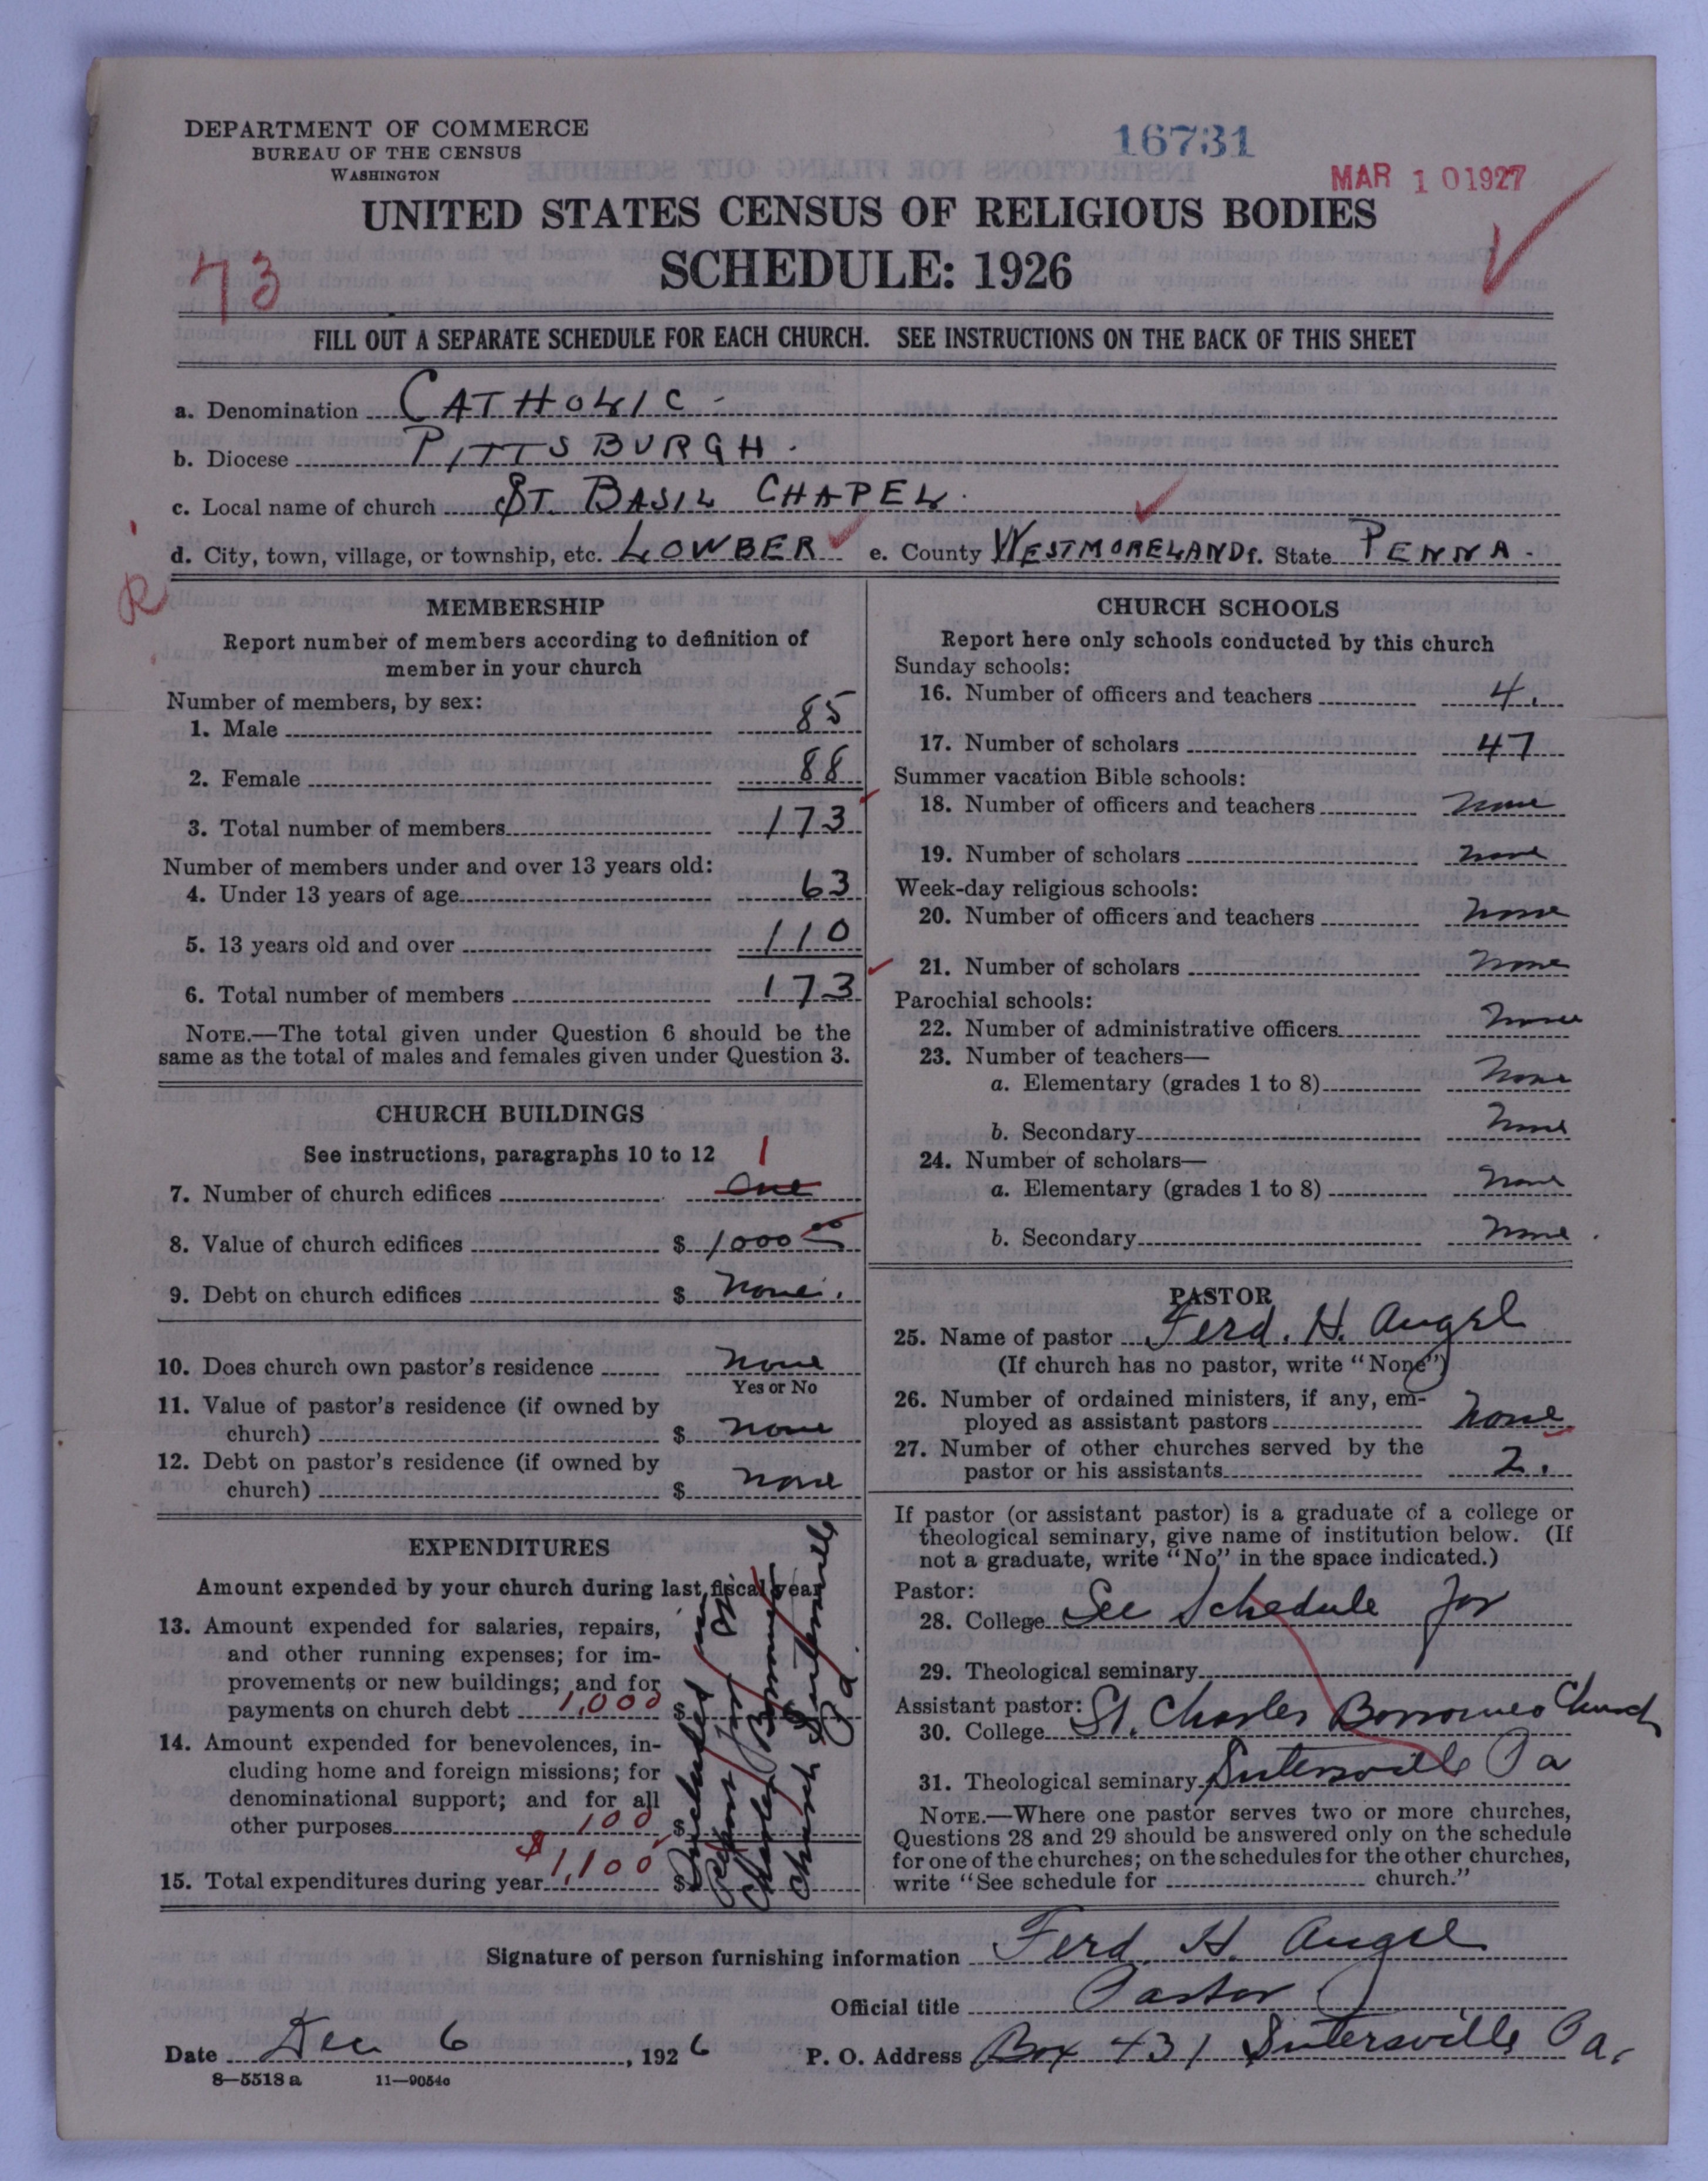 DEPARTMENT OF COMMERCE
BUREAU OF THE CENSUS
WASHINGTON
16731
MAR 10 1927
UNITED STATES CENSUS OF RELIGIOUS BODIES
SCHEDULE: 1926
73
FILL OUT A SEPARATE SCHEDULE FOR EACH CHURCH. SEE INSTRUCTIONS ON THE BACK OF THIS SHEET
a. Denomination CATHOLIC -
b. Diocese PITTSBURGH.
c. Local name of church ST. BASIL CHAPEL.
d. City, town, village, or township, etc. LOWBER e. County WESTMORELAND f. State PENNA.
R
MEMBERSHIP
Report number of members according to definition of
member in your church
Number of members, by sex:
1. Male 85
2. Female 88
3. Total number of members 173
Number of members under and over 13 years old:
4. Under 13 years of age 63
5. 13 years old and over 110
6. Total number of members 173
NOTE.—The total given under Question 6 should be the
same as the total of males and females given under Question 3.
CHURCH BUILDINGS
See instructions, paragraphs 10 to 12
1
7. Number of church edifices One
8. Value of church edifices $ 1000 00
9. Debt on church edifices $ none.
10. Does church own pastor's residence none
Yes or No
11. Value of pastor's residence (if owned by
church) $ none
12. Debt on pastor's residence (if owned by
church) $ none
EXPENDITURES
Amount expended by your church during last fiscal year
13. Amount expended for salaries, repairs,
and other running expenses; for im-
provements or new buildings; and for
payments on church debt 1,000 $
14. Amount expended for benevolences, in-
cluding home and foreign missions; for
denominational support; and for all
other purposes 100 $
15. Total expenditures during year $1,100 $
Included in
Report for St.
Charles Borromeo
Church Sutersville
Pa.
CHURCH SCHOOLS
Report here only schools conducted by this church
Sunday schools:
16. Number of officers and teachers 4.
17. Number of scholars 47
Summer vacation Bible schools:
18. Number of officers and teachers none
19. Number of scholars none
Week-day religious schools:
20. Number of officers and teachers none
21. Number of scholars none
Parochial schools:
22. Number of administrative officers none
23. Number of teachers—
a. Elementary (grades 1 to 8) none
b. Secondary none
24. Number of scholars—
a. Elementary (grades 1 to 8) none
b. Secondary none.
PASTOR
25. Name of pastor Ferd. H. Angel
(If church has no pastor, write "None")
26. Number of ordained ministers, if any, em-
ployed as assistant pastors none
27. Number of other churches served by the
pastor or his assistants 2.
If pastor (or assistant pastor) is a graduate of a college or
theological seminary, give name of institution below. (If
not a graduate, write "No" in the space indicated.)
Pastor:
28. College See Schedule for
29. Theological seminary
Assistant pastor:
30. College St. Charles Borromeo Church
31. Theological seminary Sutersville Pa
NOTE.—Where one pastor serves two or more churches,
Questions 28 and 29 should be answered only on the schedule
for one of the churches; on the schedules for the other churches,
write "See schedule for church."
Signature of person furnishing information Ferd. H. Angel
Official title Pastor
Date Dec 6, 1926 P. O. Address Box 431 Sutersville Pa.
8—5518 a 11—9054c